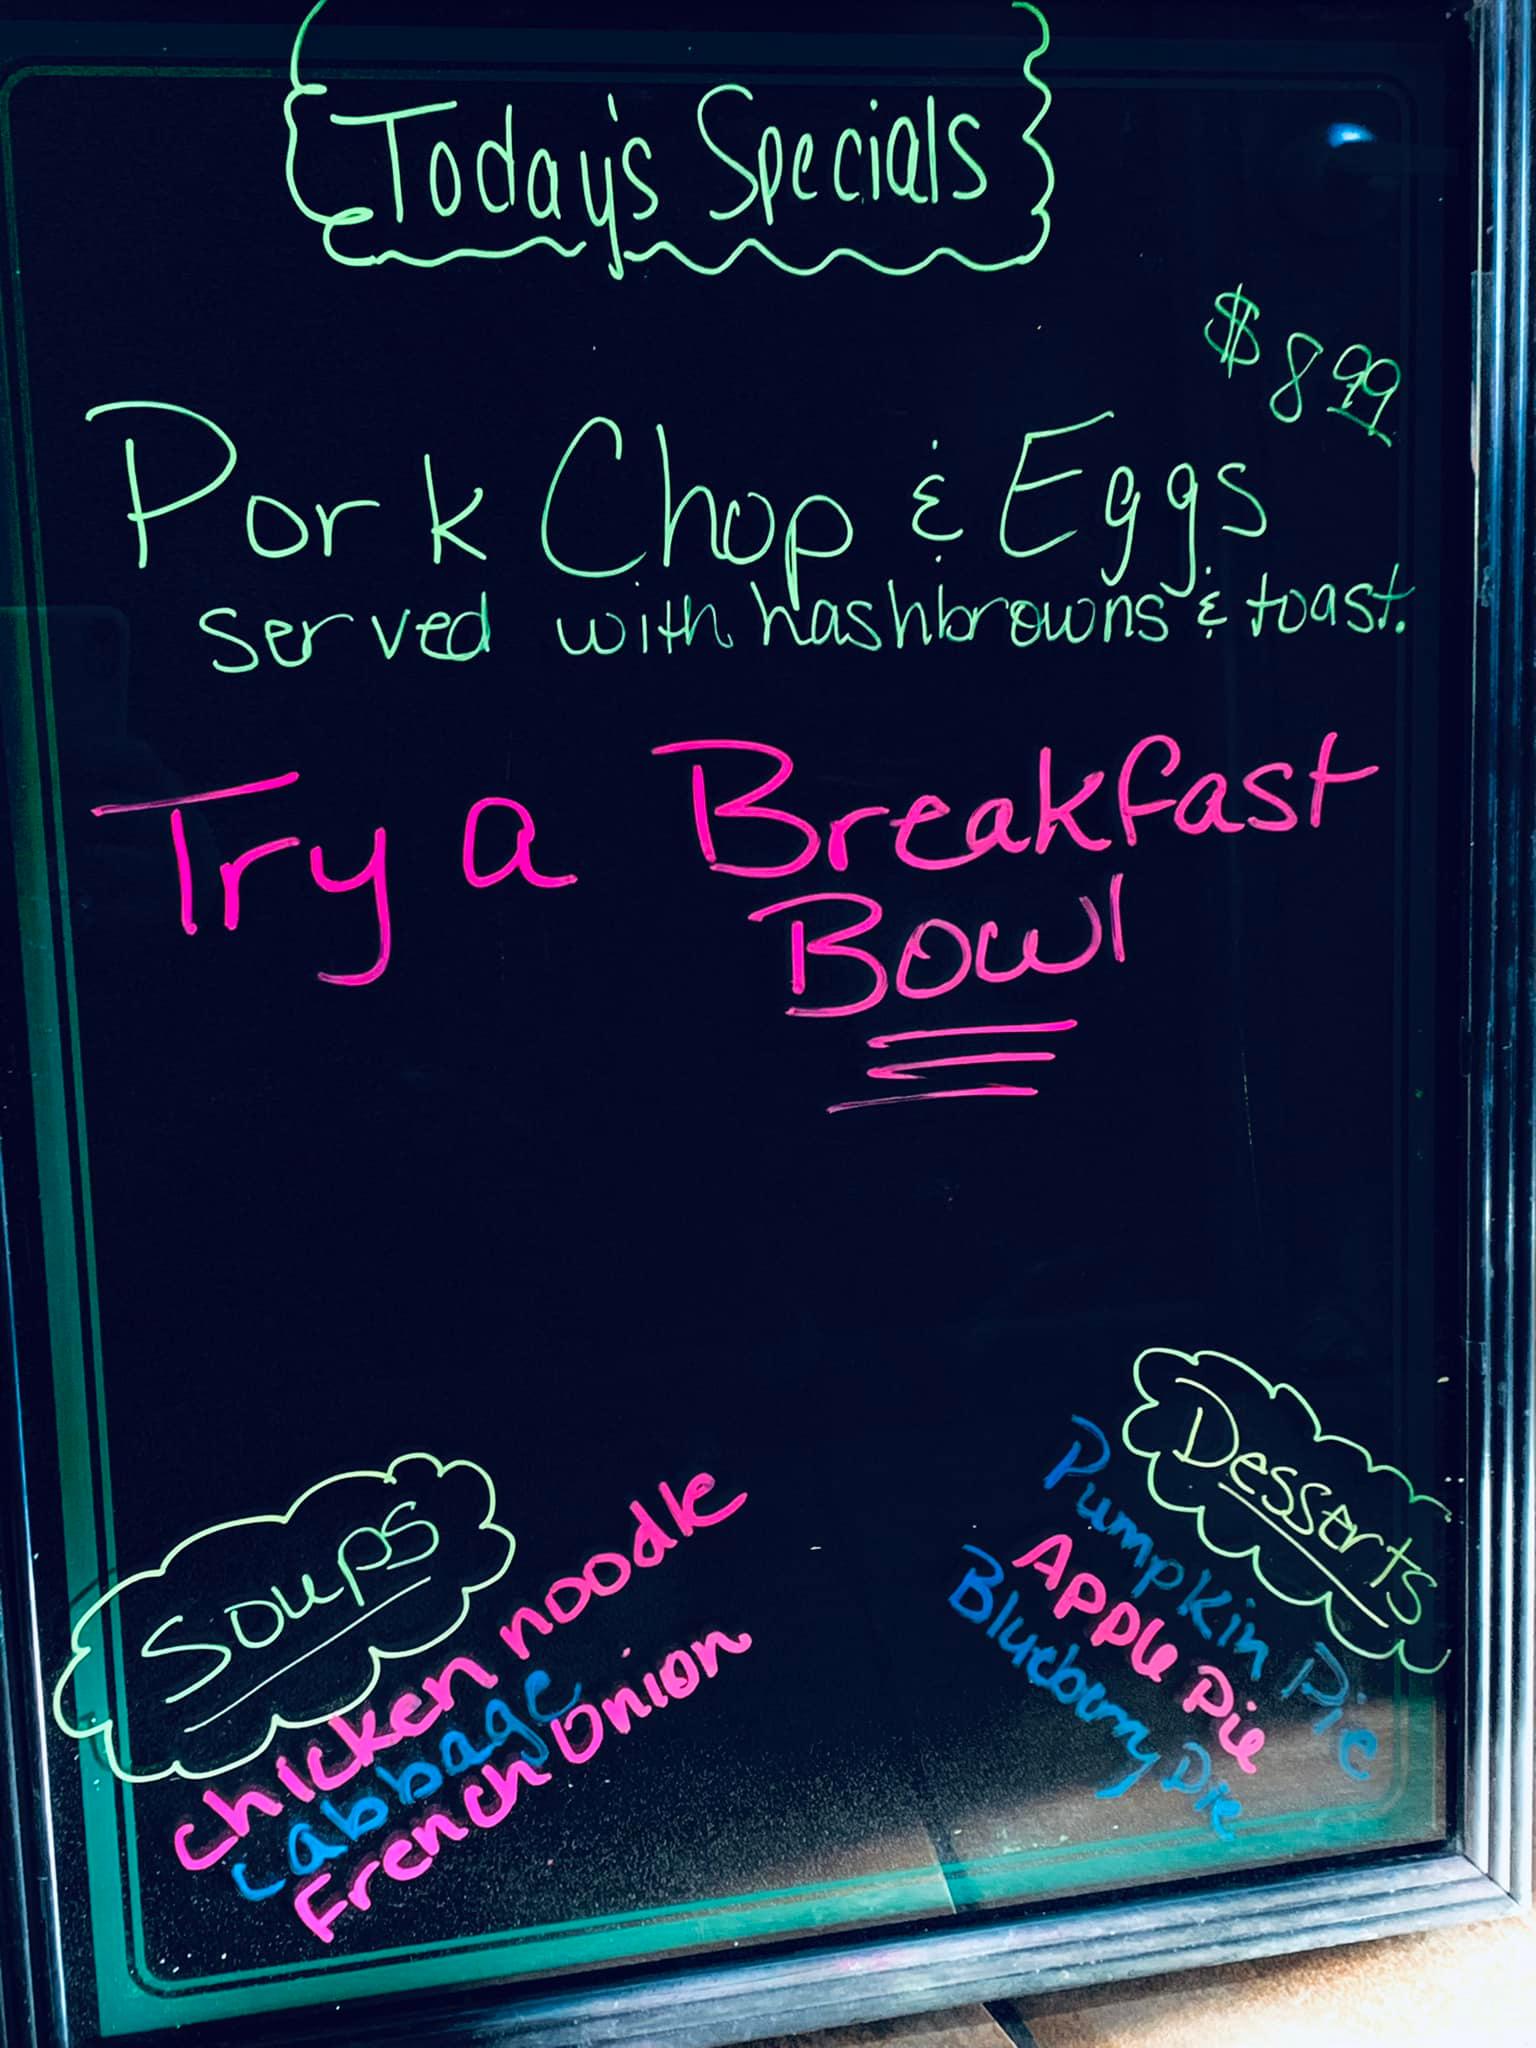 Today's Specials
$8.99
Pork Chop & Eggs
served with hashbrowns & toast.
Try a Breakfast
Bowl
Soups
chicken noodle
cabbage
French Onion
Desserts
Pumpkin Pie
Apple Pie
Blueberry Pie